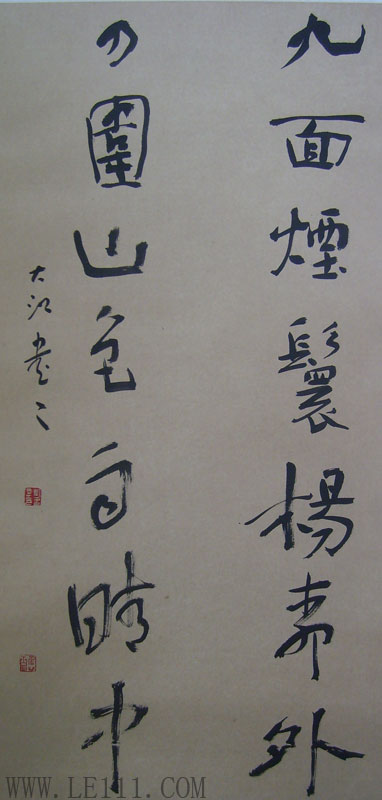 九面煙鬟楊外
圍山色晴中
大江書
WWW.LE111.COM